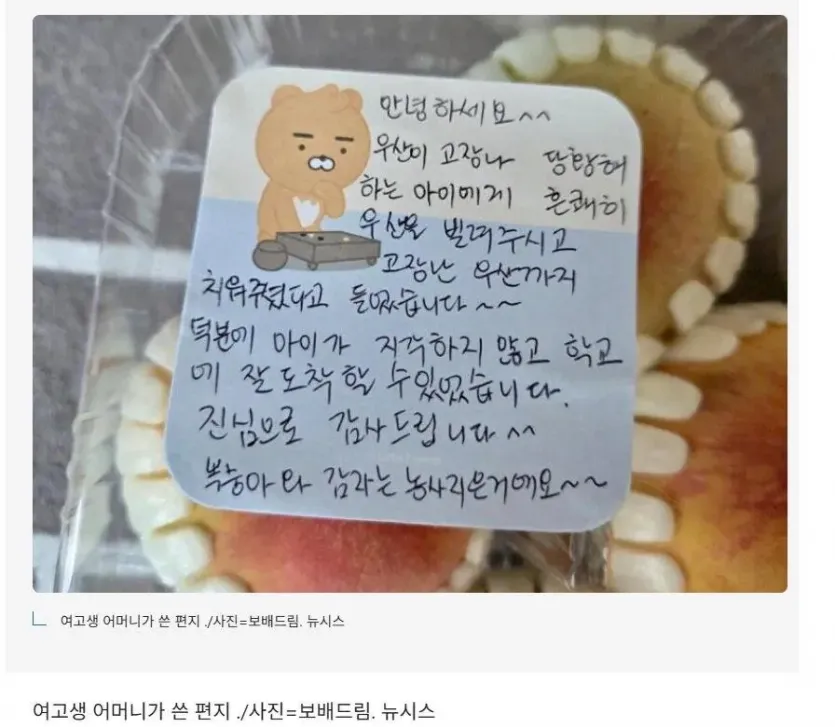 안녕하세요^^
우산이 고장나 당황해
하는 아이에게 흔쾌히
우산을 빌려주시고
고장난 우산까지
치워주셨다고 들었습니다~~
덕분에 아이가 지각하지 않고 학교
에 잘 도착할 수있었습니다.
진심으로 감사드립니다^^
복숭아와 감자는 농사지은거에요~~
여고생 어머니가 쓴 편지 ./사진=보배드림. 뉴시스
여고생 어머니가 쓴 편지 ./사진=보배드림. 뉴시스